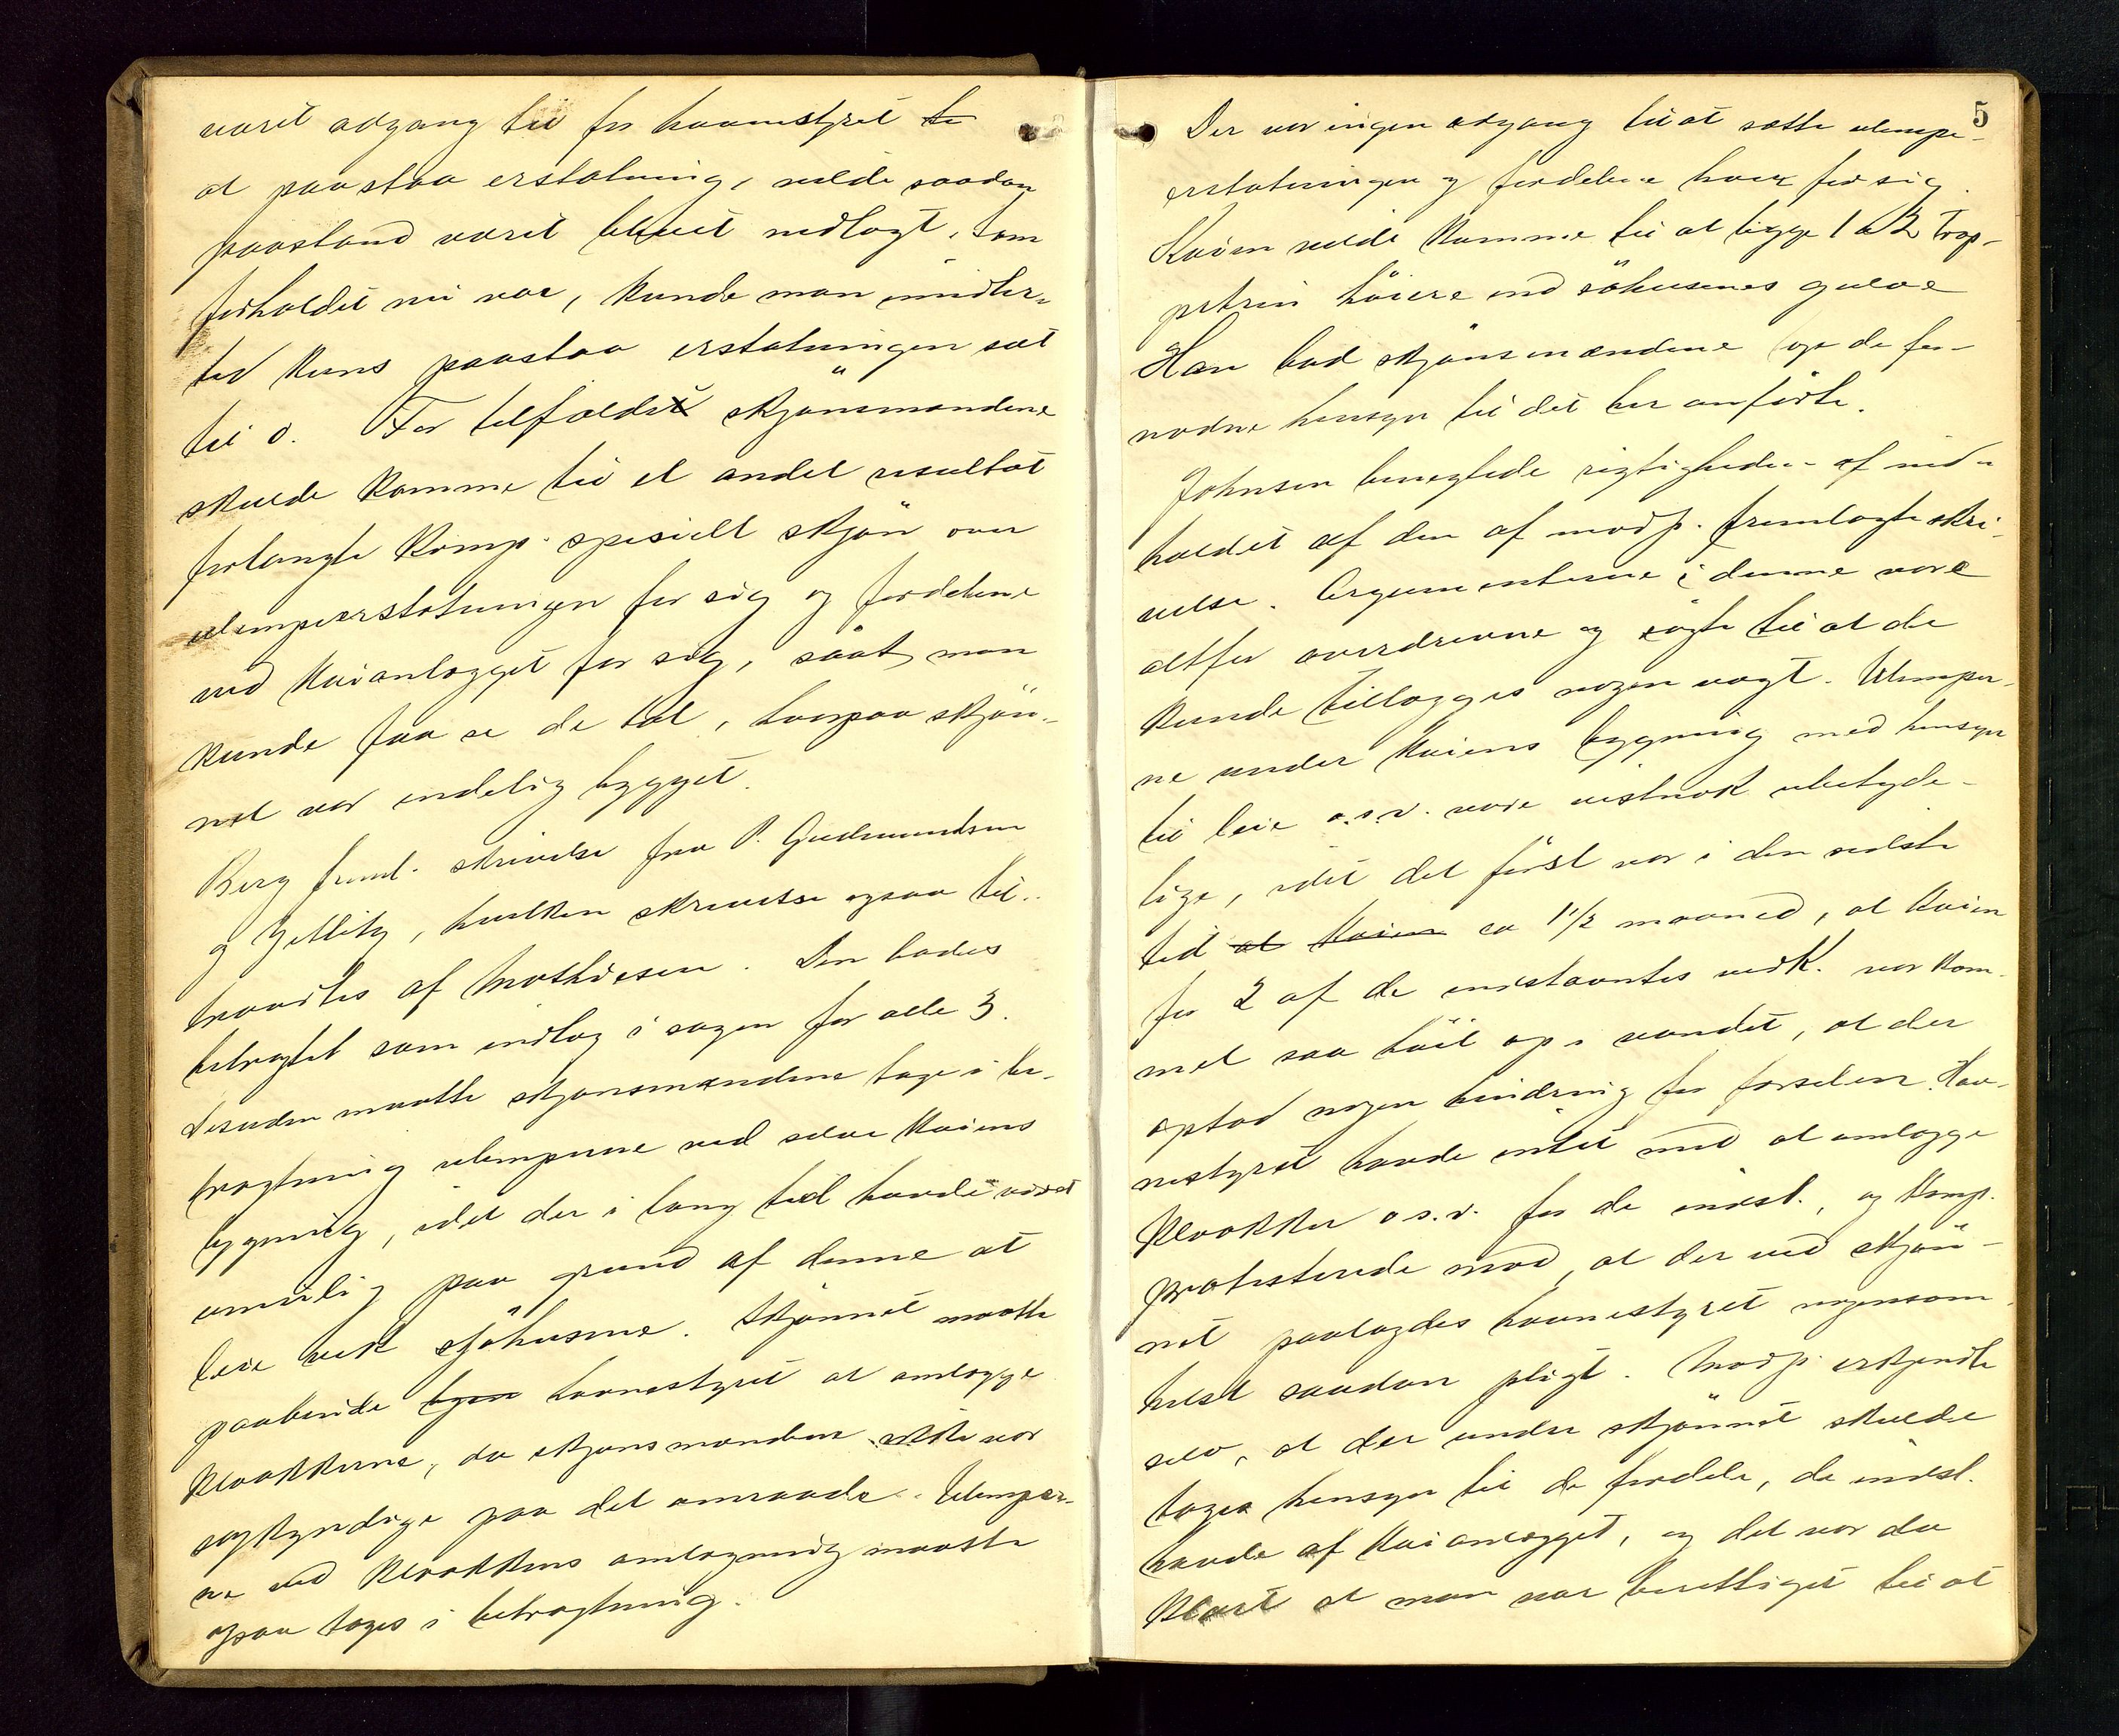 varit adgang til for havnestyret te
at paastaa erstatning, vilde saadan
paastand varit blevet nedlagt. Som
forholdet nu var, kunde man imidler-
tid kuns paastaa erstatningen sat
til 0. For tilfældet skjønsmændene
skulde komme til et andet resultat
forlangte komp. specielt skjøn over
ulempeerstatningen for sig og fordelene
ved kaianlægget for sig, saat man
kunde faa se de tal, hvorpaa skjøn-
net var endelig bygget.
Berg freml. skrivelse fra P. Gudmundsen
og Zetlitz, hvilken skrivelse ogsaa til-
traadtes af Mathiesen. Den bades
betragtet som indlæg i sagen for alle 3.
Desuden maatte skjønsmændene tage i be-
tragtning ulemperne ved selve kaiens
bygning, idet der i lang tid havde været
umulig paa grund af denne at
leie vek sjøhusene. Skjønnet maatte
paabinde byen havnestyret at omlægge
kloakkerne, da skjønsmændene ikke var
sagkyndige paa det omraade. Ulemper-
ne ved kloakkens omlægning maatte
ogsaa tages i betragtning.
5
Der var ingen adgang til at sætte ulempe-
erstatningen og fordelene hver for sig.
Kaien vilde komme til at ligge 1 a 2 trap-
petrin høiere end søhusenes gulve
Han bad skjønsmændene tage de for-
nødne hensyn til det her anførte.
Johnsen benegtede rigtigheden af ind-
holdet af den af modp. fremlagte skri-
velse. Argumenterne i denne vare
altfor overdrevne og søgte til at de
kunde tillægges nogen vægt. Ulemper-
ne under kaiens bygning med hensyn
til leie o.s.v. vare vistnok ubetyde-
lige, idet det først var i den sidste
tid at kaien ca 1 1/2 maaned, at kaien
for 2 af de indstævntes vedk. var kom-
met saa høit op i vandet, at der
opstod nogen hindring for færselen. Hav-
nestyret havde intet med at omlægge
kloakker o.s.v. for de indst., og komp.
protesterede mod, at der ved skjøn-
net paalagdes havnestyret nogensom-
helst saadan pligt. Modp. erkjendte
selv, at der under skjønnet skulde
tages hensyn til de fordele, de indst.
havde af kaianlægget, og det var da
klart at man var berettiget til at